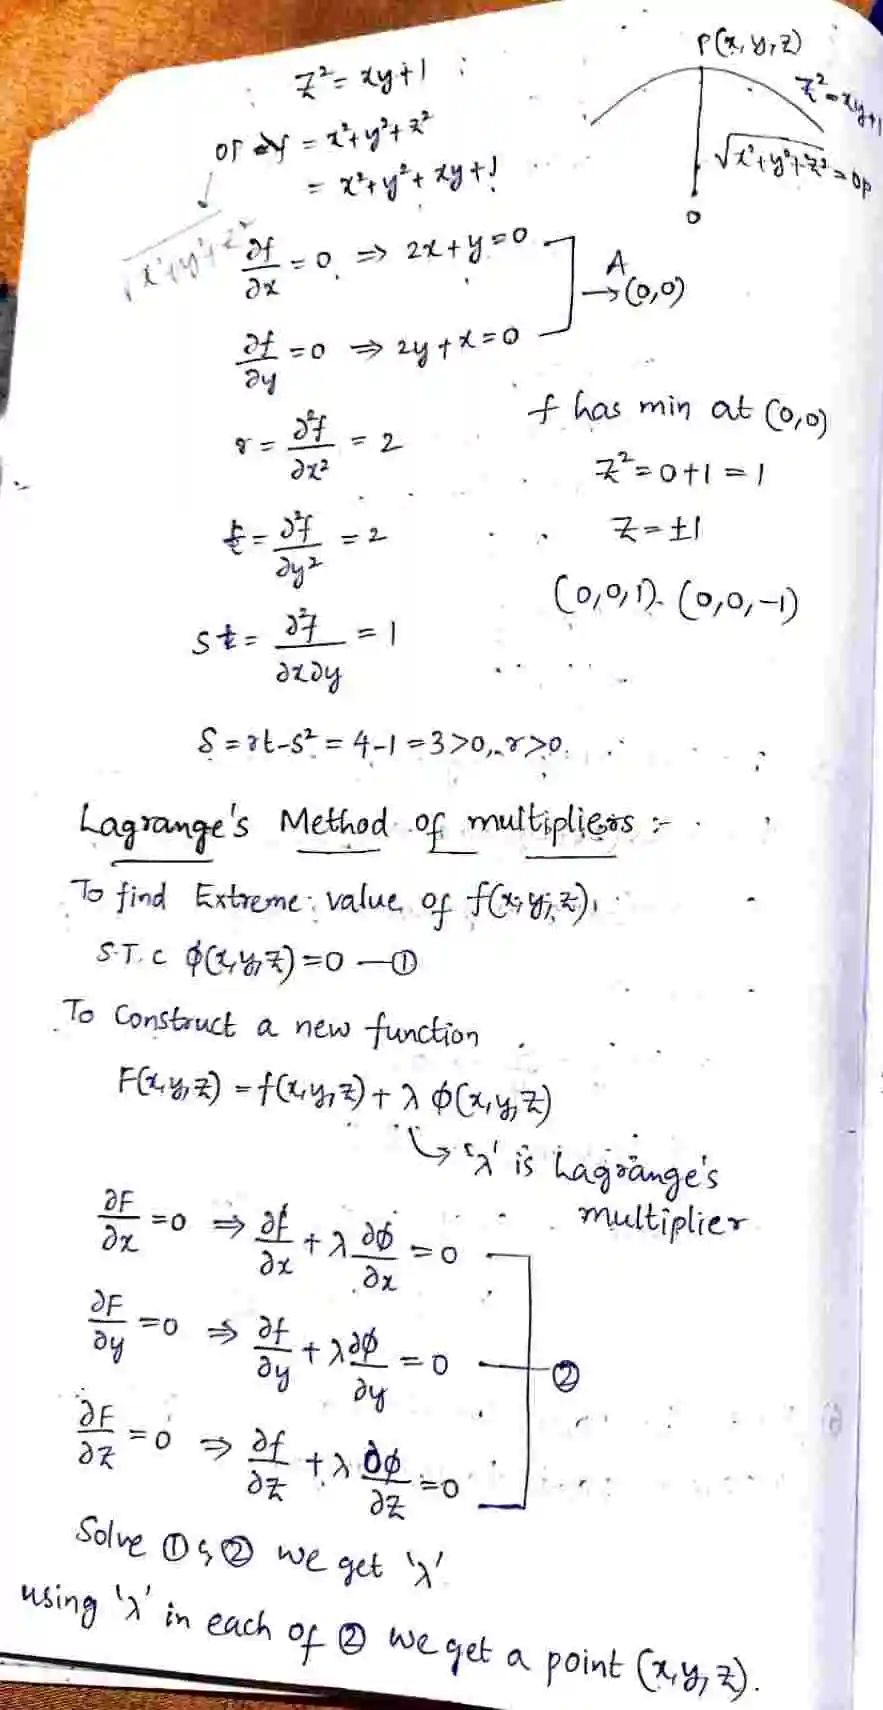 P(x, y, z)
z² = xy+1
z² = xy+1
OP f = x²+y²+z²
= x²+y²+xy+1
√x²+y²+z² = OP
O
√x²+y²+z²
∂f/∂x = 0 ⇒ 2x+y=0
A → (0,0)
∂f/∂y = 0 ⇒ 2y+x=0
f has min at (0,0)
r = ∂²f/∂x² = 2
z² = 0+1 = 1
t = ∂²f/∂y² = 2
z = ±1
(0,0,1). (0,0,-1)
s = ∂²f/∂x∂y = 1
δ = rt-s² = 4-1 = 3>0, r>0.
Lagrange's Method of multipliers :-
To find Extreme value of f(x,y,z),
S.T.C ϕ(x,y,z)=0 —①
To Construct a new function
F(x,y,z) = f(x,y,z) + λ ϕ(x,y,z)
↳ 'λ' is Lagrange's
multiplier
∂F/∂x = 0 ⇒ ∂f/∂x + λ ∂ϕ/∂x = 0
∂F/∂y = 0 ⇒ ∂f/∂y + λ ∂ϕ/∂y = 0 — ②
∂F/∂z = 0 ⇒ ∂f/∂z + λ ∂ϕ/∂z = 0
Solve ① & ② we get 'λ'
using 'λ' in each of ② we get a point (x,y,z).